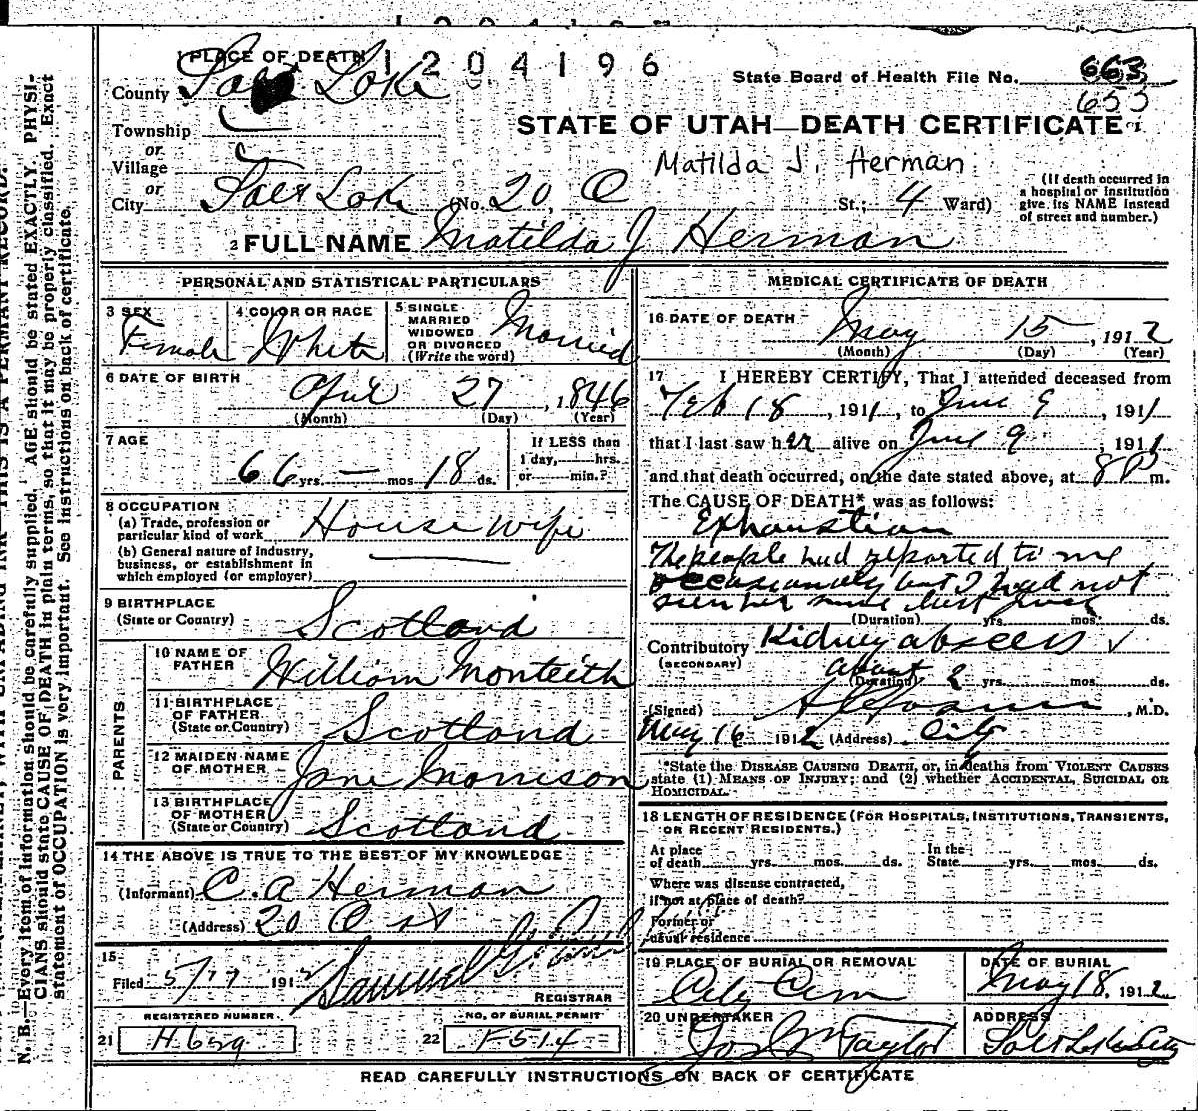 1204196
1 PLACE OF DEATH
County Salt Lake
State Board of Health File No. 663
653
Township
or
Village
or
City Salt Lake (No. 20, O St.; 4 Ward)
STATE OF UTAH—DEATH CERTIFICATE
Matilda J. Herman
(If death occurred in
a hospital or institution
give its NAME instead
of street and number.)
2 FULL NAME Matilda J Herman
PERSONAL AND STATISTICAL PARTICULARS
3 SEX Female
4 COLOR OR RACE White
5 SINGLE
MARRIED
WIDOWED
OR DIVORCED
(Write the word) Married
6 DATE OF BIRTH April 27, 1846
(Month) (Day) (Year)
7 AGE
66 yrs. — mos 18 ds.
If LESS than
1 day, hrs.
or min.?
8 OCCUPATION
(a) Trade, profession or
particular kind of work House wife
(b) General nature of Industry,
business, or establishment in
which employed (or employer)
9 BIRTHPLACE
(State or Country) Scotland
PARENTS
10 NAME OF
FATHER William Monteith
11 BIRTHPLACE
OF FATHER
(State or Country) Scotland
12 MAIDEN NAME
OF MOTHER Jane Morrison
13 BIRTHPLACE
OF MOTHER
(State or Country) Scotland
14 THE ABOVE IS TRUE TO THE BEST OF MY KNOWLEDGE
(Informant) C. A Herman
(Address) 20 O st
15
Filed 5/17 1912 Samuel G.
REGISTRAR
REGISTERED NUMBER
21 H639
NO. OF BURIAL PERMIT
22 F514
MEDICAL CERTIFICATE OF DEATH
16 DATE OF DEATH May 15, 1912
(Month) (Day) (Year)
17 I HEREBY CERTIFY, That I attended deceased from
Feb 18, 1911, to June 9, 1911
that I last saw her alive on June 9, 1911
and that death occurred, on the date stated above, at 8 P m.
The CAUSE OF DEATH* was as follows:
Exhaustion
The people had reported to me
occasionally but I had not
seen her since last June
(Duration) yrs. mos. ds.
Contributory Kidney abscess ✓
(SECONDARY)
about
(Duration) 2 yrs. mos. ds.
(Signed) , M.D.
May 16 1912 (Address) City
*State the DISEASE CAUSING DEATH, or, in deaths from VIOLENT CAUSES
state (1) MEANS OF INJURY; and (2) whether ACCIDENTAL, SUICIDAL OR
HOMICIDAL.
18 LENGTH OF RESIDENCE (FOR HOSPITALS, INSTITUTIONS, TRANSIENTS,
OR RECENT RESIDENTS.)
At place
of death yrs. mos. ds.
In the
State yrs. mos. ds.
Where was disease contracted,
if not at place of death?
Former or
usual residence
19 PLACE OF BURIAL OR REMOVAL
City Cem
DATE OF BURIAL
May 18, 1912
20 UNDERTAKER
Jos Wm Taylor
ADDRESS
Salt Lake City
READ CAREFULLY INSTRUCTIONS ON BACK OF CERTIFICATE
N. B.—Every item of information should be carefully supplied. AGE should be stated EXACTLY. PHYSI-
CIANS should state CAUSE OF DEATH in plain terms, so that it may be properly classified. Exact
statement of OCCUPATION is very important. See instructions on back of certificate.